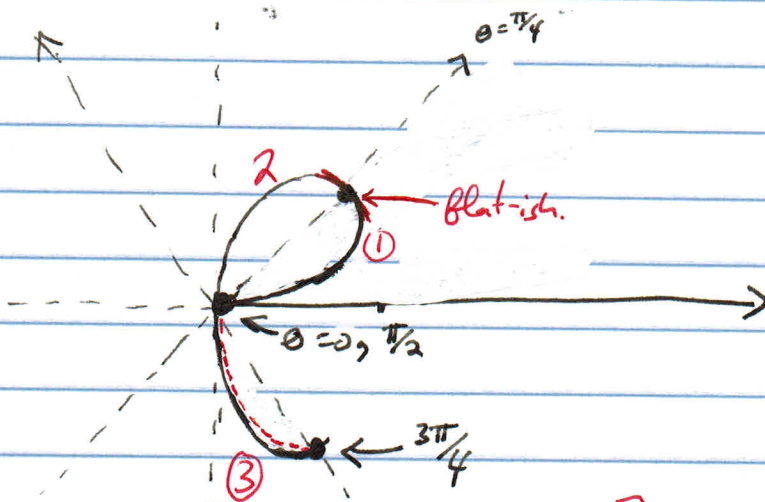 θ = π/4
2
flat-ish.
①
θ = 0, π/2
3π/4
③